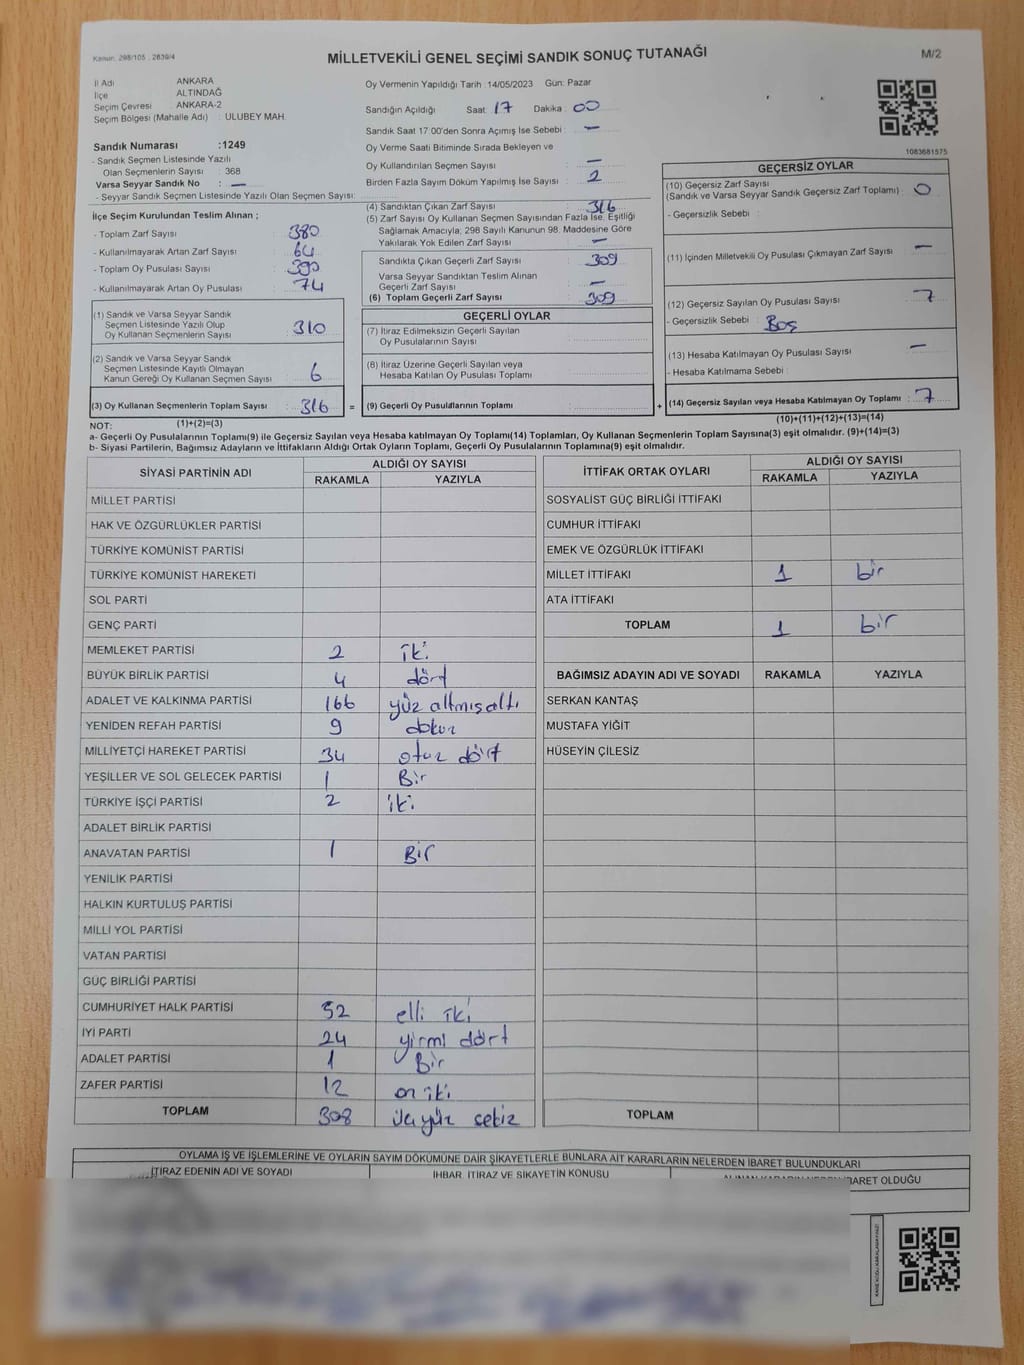 Kanun: 298/105 , 2839/4
MİLLETVEKİLİ GENEL SEÇİMİ SANDIK SONUÇ TUTANAĞI
M/2
İl Adı ANKARA
İlçe ALTINDAĞ
Seçim Çevresi ANKARA-2
Seçim Bölgesi (Mahalle Adı) : ULUBEY MAH.
Sandık Numarası :1249
- Sandık Seçmen Listesinde Yazılı
Olan Seçmenlerin Sayısı : 368
Varsa Seyyar Sandık No : —
- Seyyar Sandık Seçmen Listesinde Yazılı Olan Seçmen Sayısı:
Oy Vermenin Yapıldığı Tarih :14/05/2023 Gün: Pazar
Sandığın Açıldığı Saat: 17 Dakika: 00
Sandık Saat 17:00'den Sonra Açımış İse Sebebi : —
Oy Verme Saati Bitiminde Sırada Bekleyen ve
Oy Kullandırılan Seçmen Sayısı : —
Birden Fazla Sayım Döküm Yapılmış İse Sayısı : 2
1083681575
İlçe Seçim Kurulundan Teslim Alınan ;
- Toplam Zarf Sayısı : 380
- Kullanılmayarak Artan Zarf Sayısı : 64
- Toplam Oy Pusulası Sayısı : 390
- Kullanılmayarak Artan Oy Pusulası : 74
(1) Sandık ve Varsa Seyyar Sandık
Seçmen Listesinde Yazılı Olup
Oy Kullanan Seçmenlerin Sayısı : 310
(2) Sandık ve Varsa Seyyar Sandık
Seçmen Listesinde Kayıtlı Olmayan
Kanun Gereği Oy Kullanan Seçmen Sayısı : 6
(3) Oy Kullanan Seçmenlerin Toplam Sayısı : 316 =
(1)+(2)=(3)
(4) Sandıktan Çıkan Zarf Sayısı : 316
(5) Zarf Sayısı Oy Kullanan Seçmen Sayısından Fazla İse, Eşitliği
Sağlamak Amacıyla; 298 Sayılı Kanunun 98. Maddesine Göre
Yakılarak Yok Edilen Zarf Sayısı : —
Sandıkta Çıkan Geçerli Zarf Sayısı : 309
Varsa Seyyar Sandıktan Teslim Alınan
Geçerli Zarf Sayısı : —
(6) Toplam Geçerli Zarf Sayısı : 309
GEÇERLİ OYLAR
(7) İtiraz Edilmeksizin Geçerli Sayılan
Oy Pusulalarının Sayısı :
(8) İtiraz Üzerine Geçerli Sayılan veya
Hesaba Katılan Oy Pusulası Toplamı :
(9) Geçerli Oy Pusulalarının Toplamı : +
GEÇERSİZ OYLAR
(10) Geçersiz Zarf Sayısı
(Sandık ve Varsa Seyyar Sandık Geçersiz Zarf Toplamı) : 0
- Geçersizlik Sebebi :
(11) İçinden Milletvekili Oy Pusulası Çıkmayan Zarf Sayısı : —
(12) Geçersiz Sayılan Oy Pusulası Sayısı : 7
- Geçersizlik Sebebi : Boş
(13) Hesaba Katılmayan Oy Pusulası Sayısı : —
- Hesaba Katılmama Sebebi :
(14) Geçersiz Sayılan veya Hesaba Katılmayan Oy Toplamı : 7
(10)+(11)+(12)+(13)=(14)
NOT:
a- Geçerli Oy Pusulalarının Toplamı(9) ile Geçersiz Sayılan veya Hesaba katılmayan Oy Toplamı(14) Toplamları, Oy Kullanan Seçmenlerin Toplam Sayısına(3) eşit olmalıdır. (9)+(14)=(3)
b- Siyasi Partilerin, Bağımsız Adayların ve İttifakların Aldığı Ortak Oyların Toplamı, Geçerli Oy Pusulalarının Toplamına(9) eşit olmalıdır.
SİYASİ PARTİNİN ADI ALDIĞI OY SAYISI
RAKAMLA YAZIYLA
MİLLET PARTİSİ
HAK VE ÖZGÜRLÜKLER PARTİSİ
TÜRKİYE KOMÜNİST PARTİSİ
TÜRKİYE KOMÜNİST HAREKETİ
SOL PARTİ
GENÇ PARTİ
MEMLEKET PARTİSİ 2 iki
BÜYÜK BİRLİK PARTİSİ 4 dört
ADALET VE KALKINMA PARTİSİ 166 yüz altmış altı
YENİDEN REFAH PARTİSİ 9 dokuz
MİLLİYETÇİ HAREKET PARTİSİ 34 otuz dört
YEŞİLLER VE SOL GELECEK PARTİSİ 1 Bir
TÜRKİYE İŞÇİ PARTİSİ 2 iki
ADALET BİRLİK PARTİSİ
ANAVATAN PARTİSİ 1 Bir
YENİLİK PARTİSİ
HALKIN KURTULUŞ PARTİSİ
MİLLİ YOL PARTİSİ
VATAN PARTİSİ
GÜÇ BİRLİĞİ PARTİSİ
CUMHURİYET HALK PARTİSİ 52 elli iki
İYİ PARTİ 24 yirmi dört
ADALET PARTİSİ 1 Bir
ZAFER PARTİSİ 12 on iki
TOPLAM 308 üçyüz sekiz
İTTİFAK ORTAK OYLARI ALDIĞI OY SAYISI
RAKAMLA YAZIYLA
SOSYALİST GÜÇ BİRLİĞİ İTTİFAKI
CUMHUR İTTİFAKI
EMEK VE ÖZGÜRLÜK İTTİFAKI
MİLLET İTTİFAKI 1 bir
ATA İTTİFAKI
TOPLAM 1 bir
BAĞIMSIZ ADAYIN ADI VE SOYADI RAKAMLA YAZIYLA
SERKAN KANTAŞ
MUSTAFA YİĞİT
HÜSEYİN ÇİLESİZ
TOPLAM
OYLAMA İŞ VE İŞLEMLERİNE VE OYLARIN SAYIM DÖKÜMÜNE DAİR ŞİKAYETLERLE BUNLARA AİT KARARLARIN NELERDEN İBARET BULUNDUKLARI
İTİRAZ EDENİN ADI VE SOYADI İHBAR, İTİRAZ VE ŞİKAYETİN KONUSU İBARET OLDUĞU